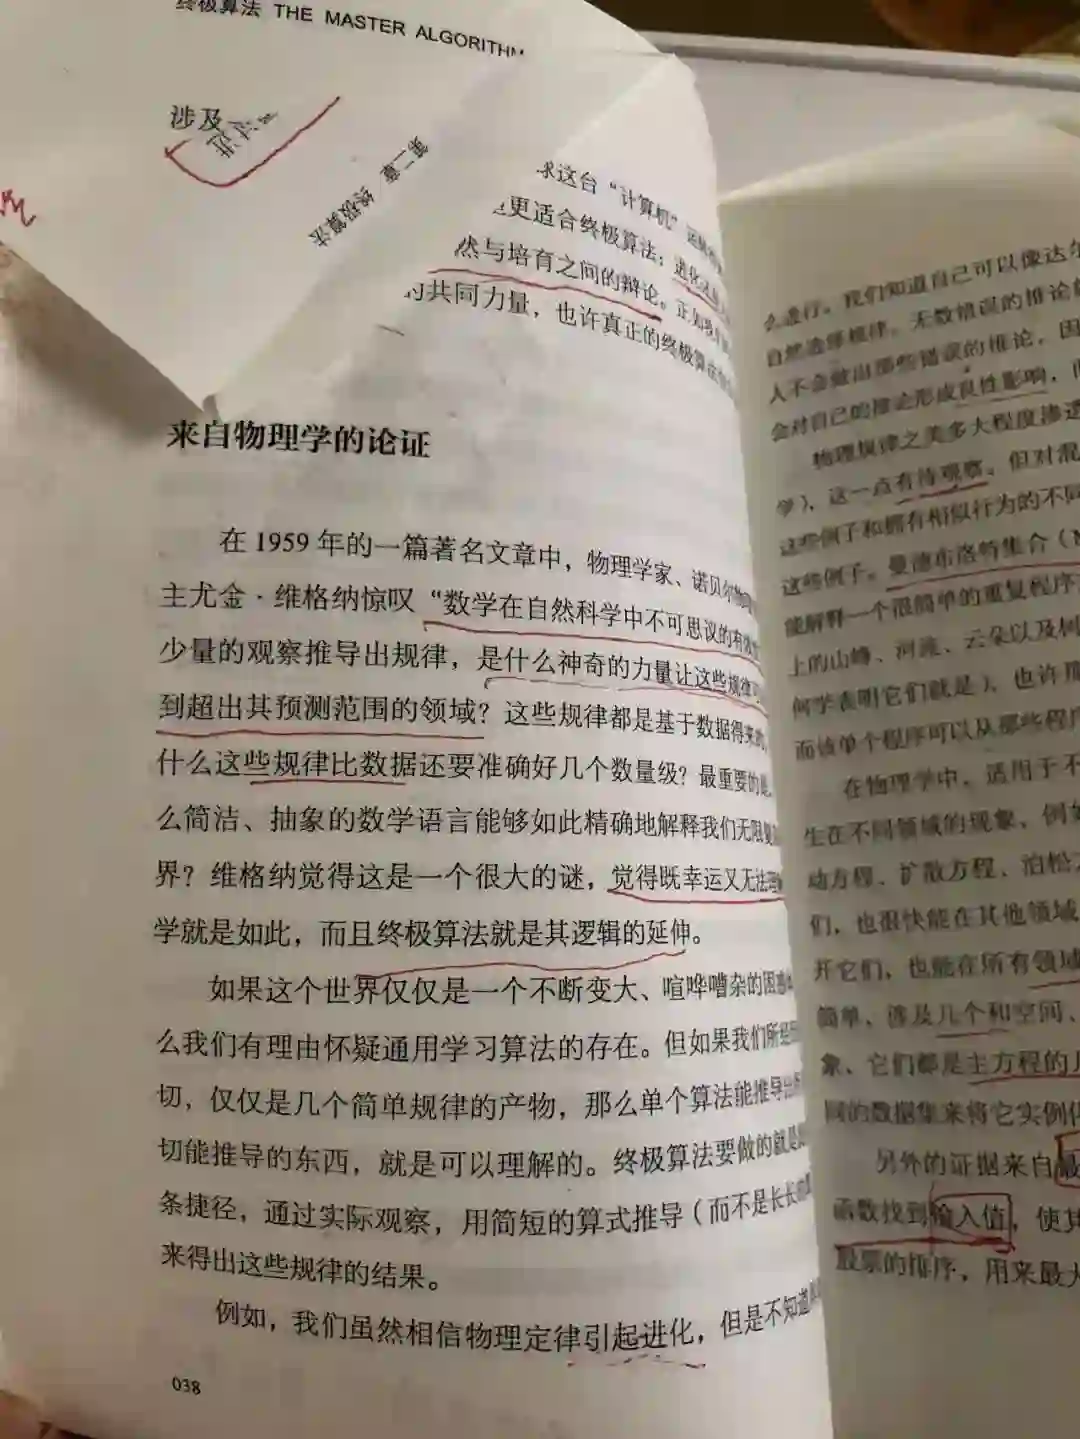 终极算法 THE MASTER ALGORITHM
涉及
第二章 终极算法
球这台“计算机”运
更适合终极算法：进化还是
然与培育之间的辩论。正如我们
的共同力量，也许真正的终极算法
来自物理学的论证
在 1959 年的一篇著名文章中，物理学家、诺贝尔物理
主尤金·维格纳惊叹“数学在自然科学中不可思议的有效性
少量的观察推导出规律，是什么神奇的力量让这些规律
到超出其预测范围的领域？这些规律都是基于数据得来的，
什么这些规律比数据还要准确好几个数量级？最重要的是，
么简洁、抽象的数学语言能够如此精确地解释我们无限复
界？维格纳觉得这是一个很大的谜，觉得既幸运又无法理解
学就是如此，而且终极算法就是其逻辑的延伸。
如果这个世界仅仅是一个不断变大、喧哗嘈杂的困惑
么我们有理由怀疑通用学习算法的存在。但如果我们所经历
切，仅仅是几个简单规律的产物，那么单个算法能推导出
切能推导的东西，就是可以理解的。终极算法要做的就是
条捷径，通过实际观察，用简短的算式推导（而不是长长的
来得出这些规律的结果。
例如，我们虽然相信物理定律引起进化，但是不知道
038
么进行。我们知道自己可以像达尔
自然选择规律。无数错误的推论
人不会做出那些错误的推论，因
会对自己的推论形成良性影响，
物理规律之美多大程度渗透
学），这一点有待观察。但对混
这些例子和拥有相似行为的不同
这些例子。曼德布洛特集合（M
能解释一个很简单的重复程序
上的山峰、河流、云朵以及树
何学表明它们就是），也许那
而该单个程序可以从那些程序
在物理学中，适用于不
生在不同领域的现象，例如
动方程、扩散方程、泊松
们，也很快能在其他领域
开它们，也能在所有领域
简单，涉及几个和空间、
象，它们都是主方程的几
同的数据集来将它实例化
另外的证据来自最
函数找到输入值，使其
股票的排序，用来最大